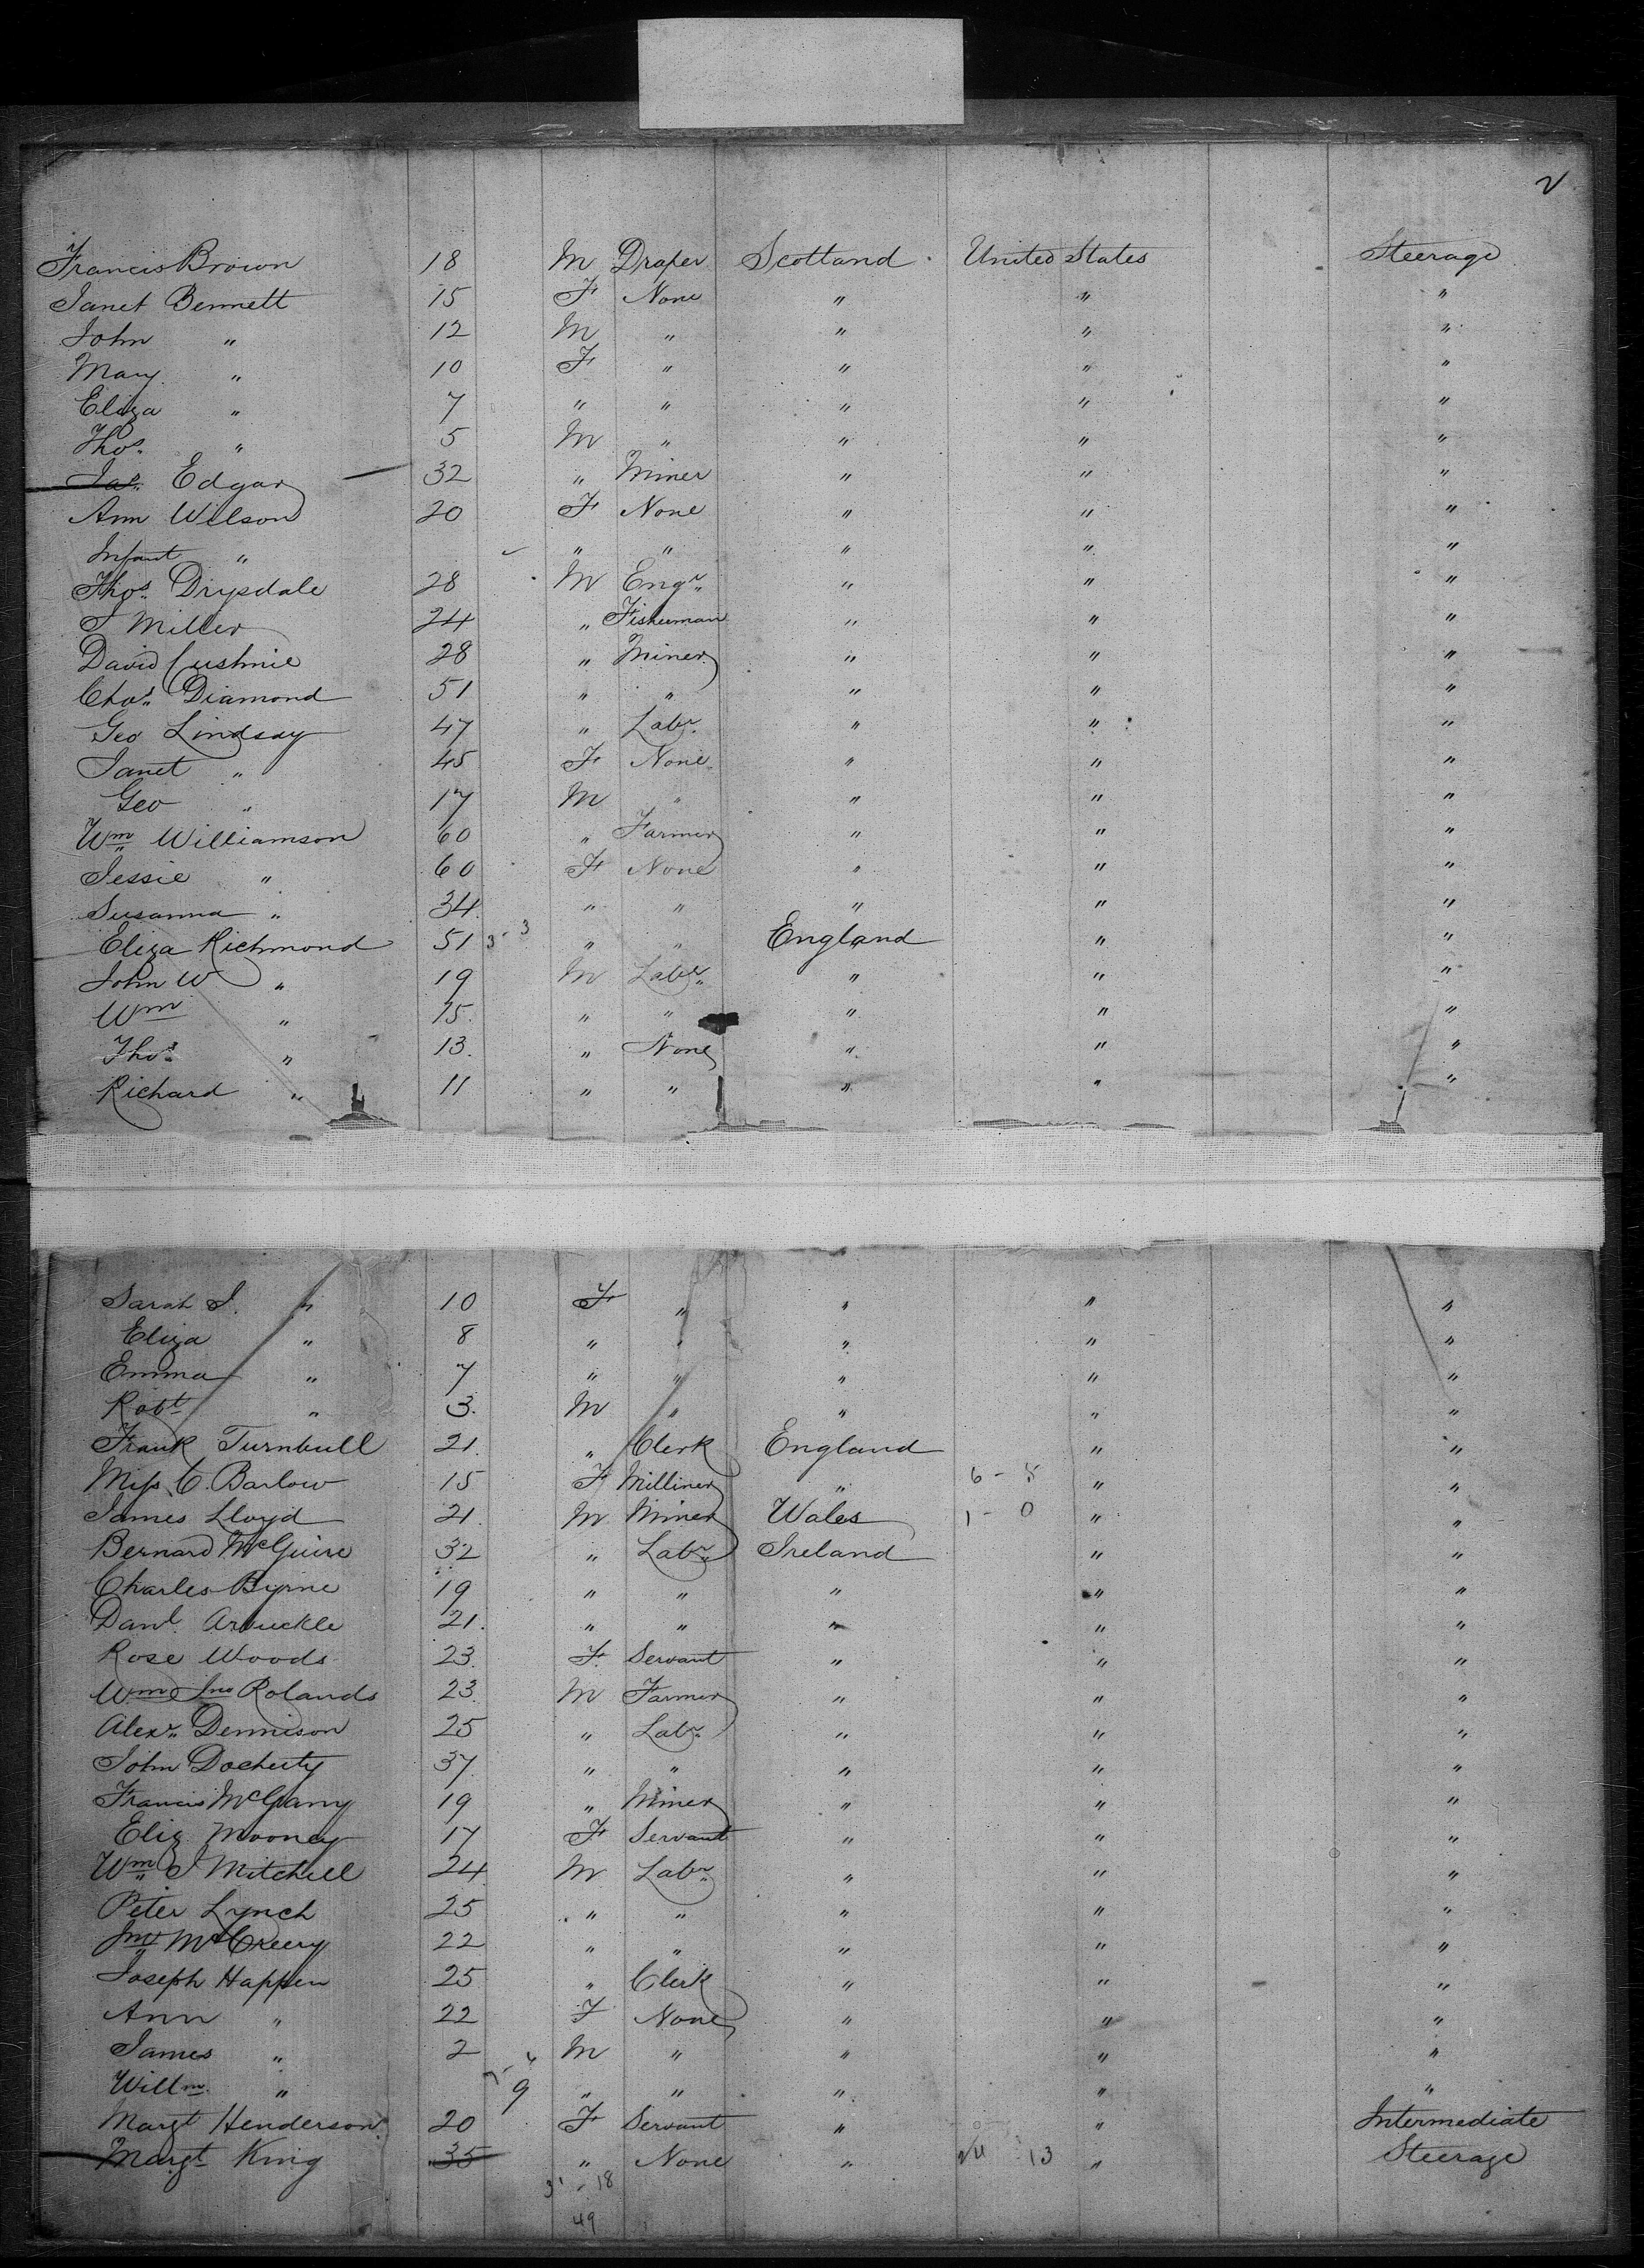 2
Francis Brown 18 M Draper Scotland United States Steerage
Janet Bennett 15 F None " " "
John " 12 M " " " "
Mary " 10 F " " " "
Eliza " 7 " " " " "
Thos. " 5 M " " " "
Jas. Edgar 32 " Miner " " "
Ann Wilson 20 F None " " "
Infant " " " " " "
Thos. Drysdale 28 M Engr. " " "
J Miller 24 " Fisherman " " "
David Cushnie 28 " Miner " " "
Chas. Diamond 51 " " " " "
Geo Lindsay 47 " Labr. " " "
Janet " 45 F None " " "
Geo " 17 M " " " "
Wm Williamson 60 " Farmer " " "
Jessie " 60 F None " " "
Susanna " 34 " " " " "
Eliza Richmond 51 3-3 " " England " "
John W " 19 M Labr. " " "
Wm " 15 " " " " "
Thos. " 13 " None " " "
Richard " 11 " " " " "
Sarah J. " 10 F " " " "
Eliza " 8 " " " " "
Emma " 7 " " " " "
Robt " 3 M " " " "
Frank Turnbull 21 " Clerk England " "
Miss C. Barlow 15 F Milliner " 6 - 5 " "
James Lloyd 21 M Miner Wales 1 - 0 " "
Bernard McGuire 32 " Labr. Ireland " "
Charles Byrne 19 " " " " "
Danl. Arbuckle 21 " " " " "
Rose Woods 23 F Servant " " "
Wm Jno Rolands 23 M Farmer " " "
Alexr. Dennison 25 " Labr. " " "
John Docherty 37 " " " " "
Francis McGarry 19 " Miner " " "
Eliz Mooney 17 F Servant " " "
Wm J Mitchell 24 M Labr. " " "
Peter Lynch 25 " " " " "
Jno McCreery 22 " " " " "
Joseph Happen 25 " Clerk " " "
Ann " 22 F None " " "
James " 2 M " " " "
Willm. " 9 " " " " "
Margt Henderson 20 F Servant " " Intermediate
Margt King 35 " None " 13 " Steerage
31 - 18
49